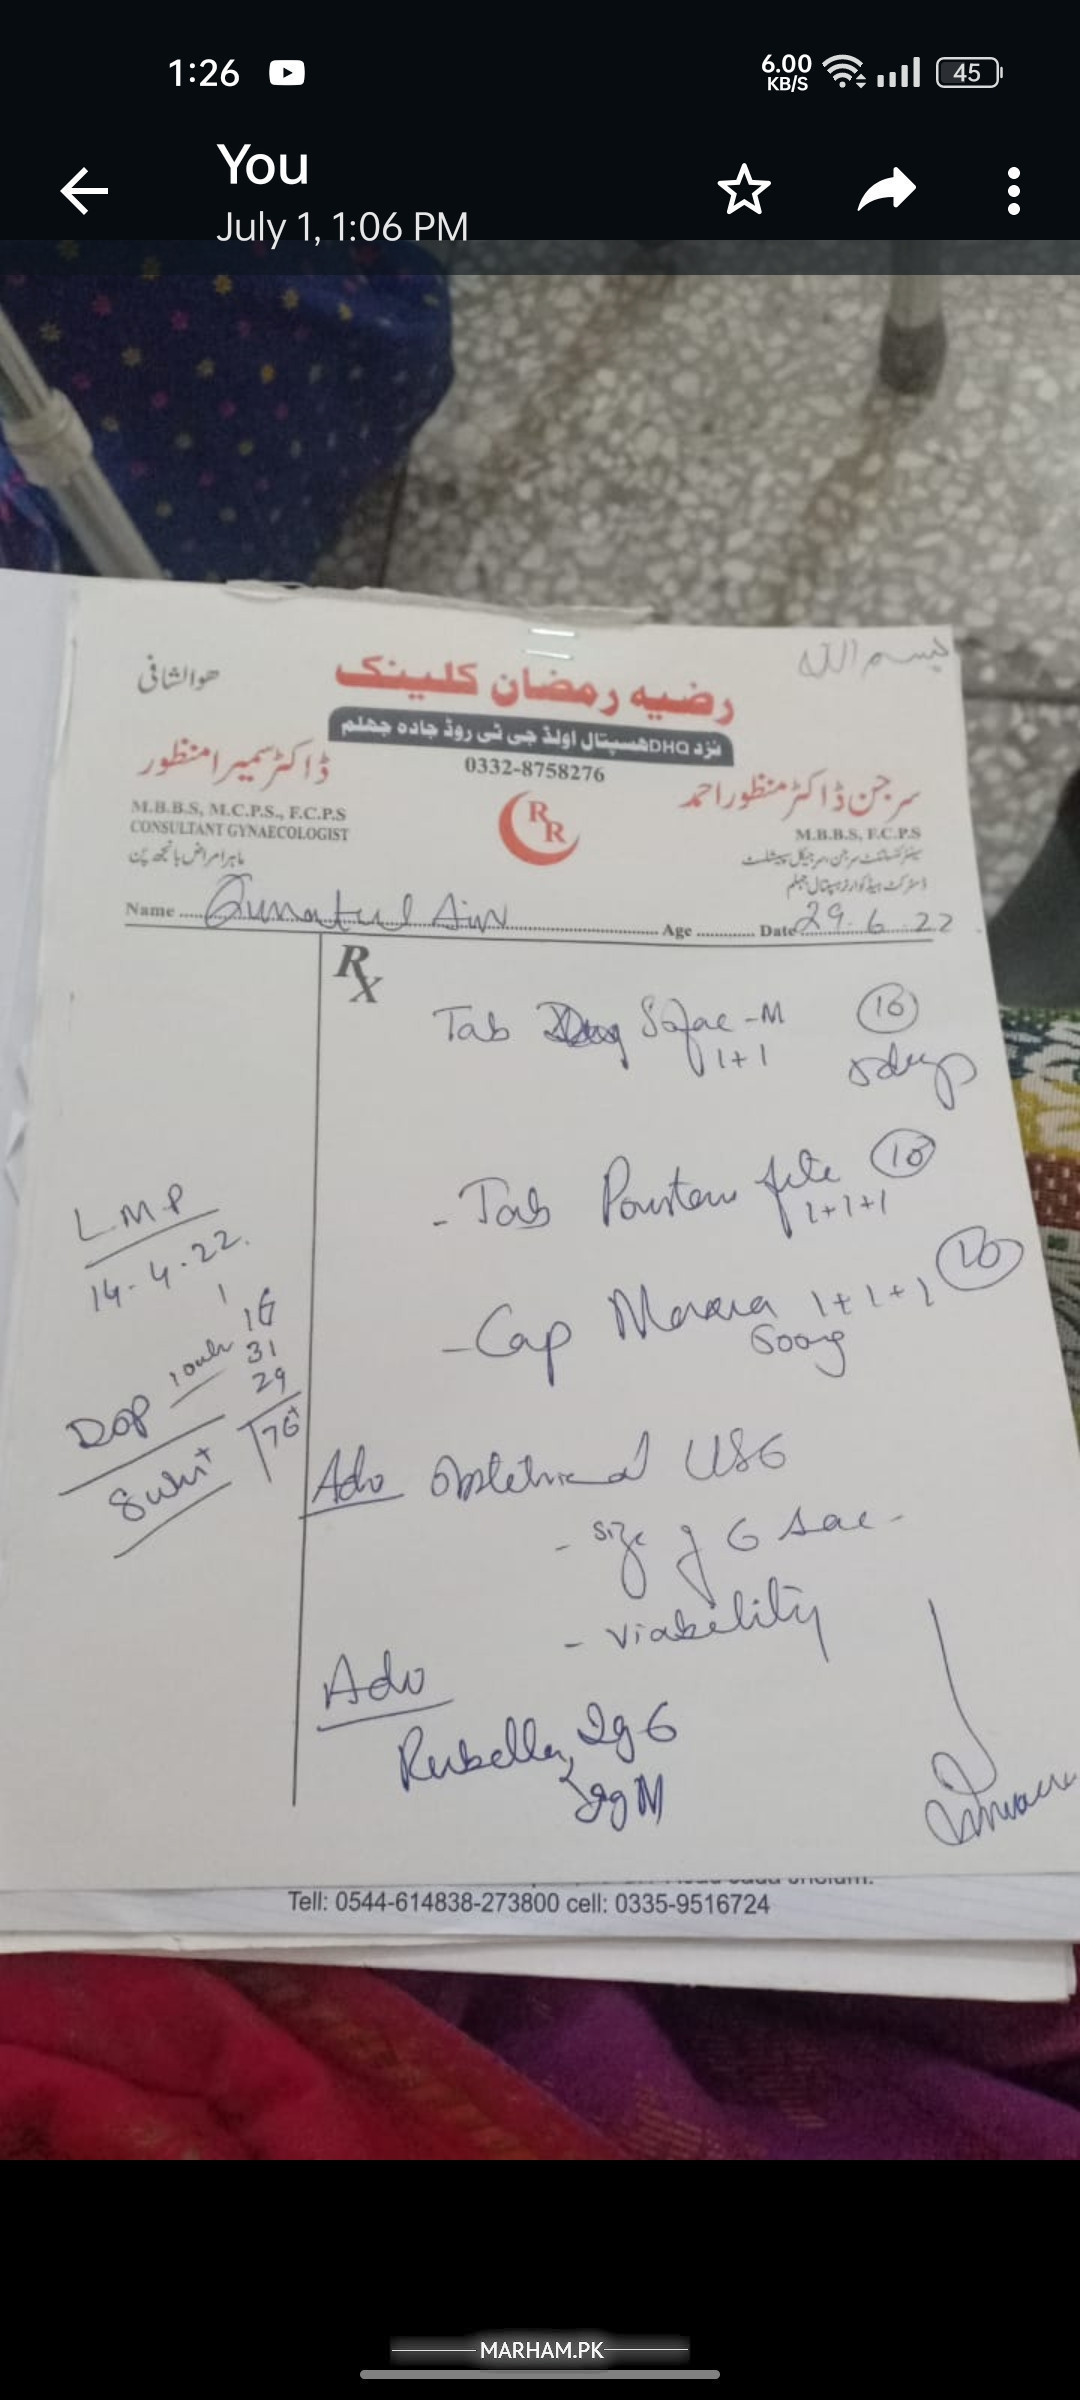 1:26
6.00
KB/S
45
You
July 1, 1:06 PM
بسم الله
هوالشافی
رضیہ رمضان کلینک
نزد DHQ ھسپتال اولڈ جی ٹی روڈ جادہ جھلم
0332-8758276
ڈاکٹر سمیرا منظور
M.B.B.S, M.C.P.S., F.C.P.S
CONSULTANT GYNAECOLOGIST
ماہر امراض بانجھ پن
سرجن ڈاکٹر منظور احمد
M.B.B.S, F.C.P.S
سینئر کنسلٹنٹ سرجن، سرجیکل سپیشلسٹ
ڈسٹرکٹ ہیڈ کوارٹر ہسپتال جہلم
RR
Name Qurratul Ain Age Date 29.6.22
Rx
Tab -M
1+1
- Tab 1+1+1
- Cap 1+1+1
LMP
14-4-22
16
31
29
76+
DOP
8wks+
Adv Obstetrical USG
- size of G sac -
- viability
Adv
Rubella, IgG
IgM
Tell: 0544-614838-273800 cell: 0335-9516724
MARHAM.PK